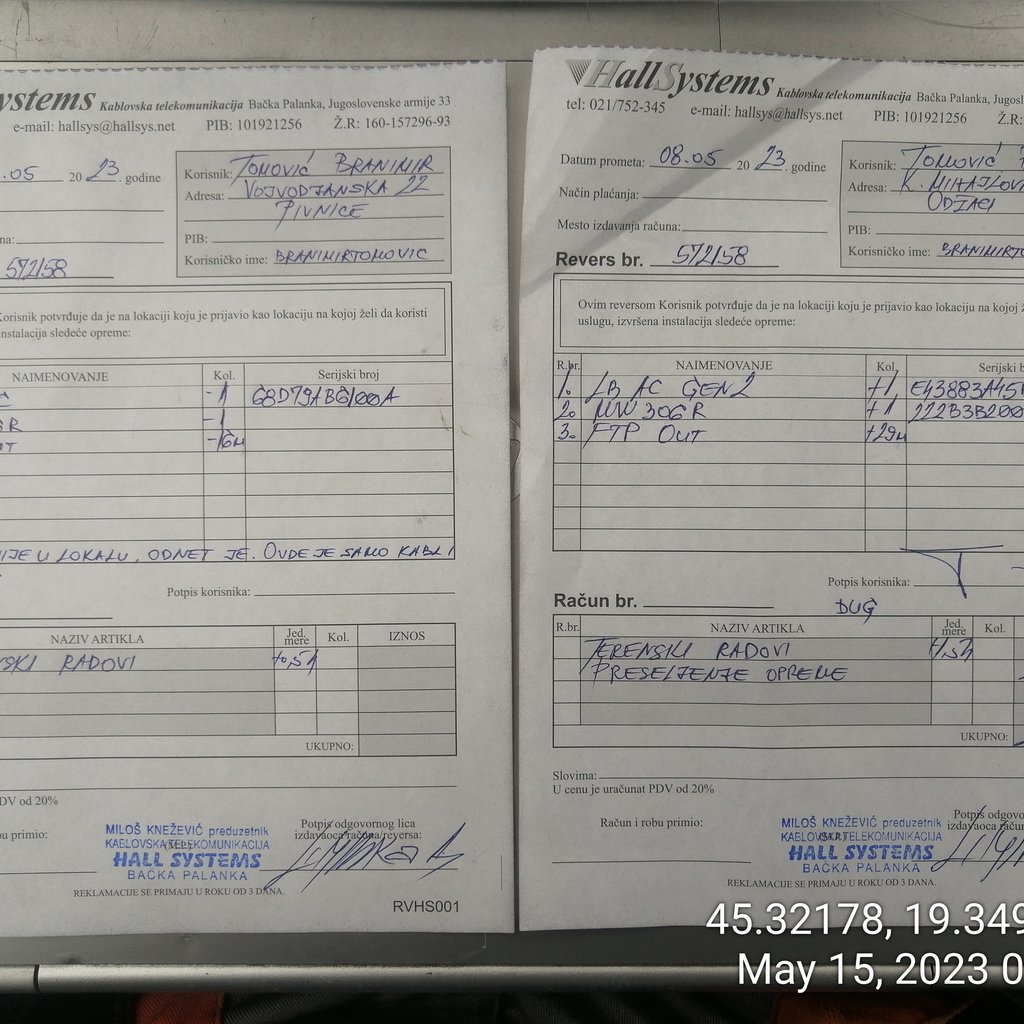 ystems Kablovska telekomunikacija Bačka Palanka, Jugoslovenske armije 33
e-mail: hallsys@hallsys.net PIB: 101921256 Ž.R: 160-157296-93
.05 20 23. godine
Korisnik: TOMOVIĆ BRANIMIR
Adresa: VOJVODJANSKA 22
PIVNICE
PIB:
Korisničko ime: BRANIMIRTOMOVIC
572/58
Korisnik potvrđuje da je na lokaciji koju je prijavio kao lokaciju na kojoj želi da koristi
instalacija sledeće opreme:
NAIMENOVANJE Kol. Serijski broj
-1 68D79ABG100A
R -1
-16m
JE U LOKALU, ODNET JE. OVDE JE SAMO KABL
Potpis korisnika:
NAZIV ARTIKLA Jed. mere Kol. IZNOS
SKI RADOVI +0,5h
UKUPNO:
PDV od 20%
bu primio:
MILOŠ KNEŽEVIĆ preduzetnik
KABLOVSKA TELEKOMUNIKACIJA
HALL SYSTEMS
BAČKA PALANKA
Potpis odgovornog lica
izdavaoca računa/reversa:
REKLAMACIJE SE PRIMAJU U ROKU OD 3 DANA.
RVHS001
HallSystems Kablovska telekomunikacija Bačka Palanka, Jugosl
tel: 021/752-345 e-mail: hallsys@hallsys.net PIB: 101921256 Ž.R:
Datum prometa: 08.05 20 23. godine
Način plaćanja:
Mesto izdavanja računa:
Revers br. 572/58
Korisnik: TOMOVIĆ
Adresa: K. MIHAJLOV
ODZACI
PIB:
Korisničko ime: BRANIMIRTO
Ovim reversom Korisnik potvrđuje da je na lokaciji koju je prijavio kao lokaciju na kojoj ž
uslugu, izvršena instalacija sledeće opreme:
R.br. NAIMENOVANJE Kol. Serijski b
1. LB AC GEN2 +1 E43883A45
2. MW 306R +1 222B3B200
3. FTP OUT +29m
Potpis korisnika:
Račun br.
DUG
R.br. NAZIV ARTIKLA Jed. mere Kol.
TERENSKI RADOVI 1,5h
PRESELJENJE OPREME
UKUPNO:
Slovima:
U cenu je uračunat PDV od 20%
Račun i robu primio:
MILOŠ KNEŽEVIĆ preduzetnik
KABLOVSKA TELEKOMUNIKACIJA
HALL SYSTEMS
BAČKA PALANKA
Potpis odgovo
izdavaoca račun
REKLAMACIJE SE PRIMAJU U ROKU OD 3 DANA.
45.32178, 19.349
May 15, 2023 0